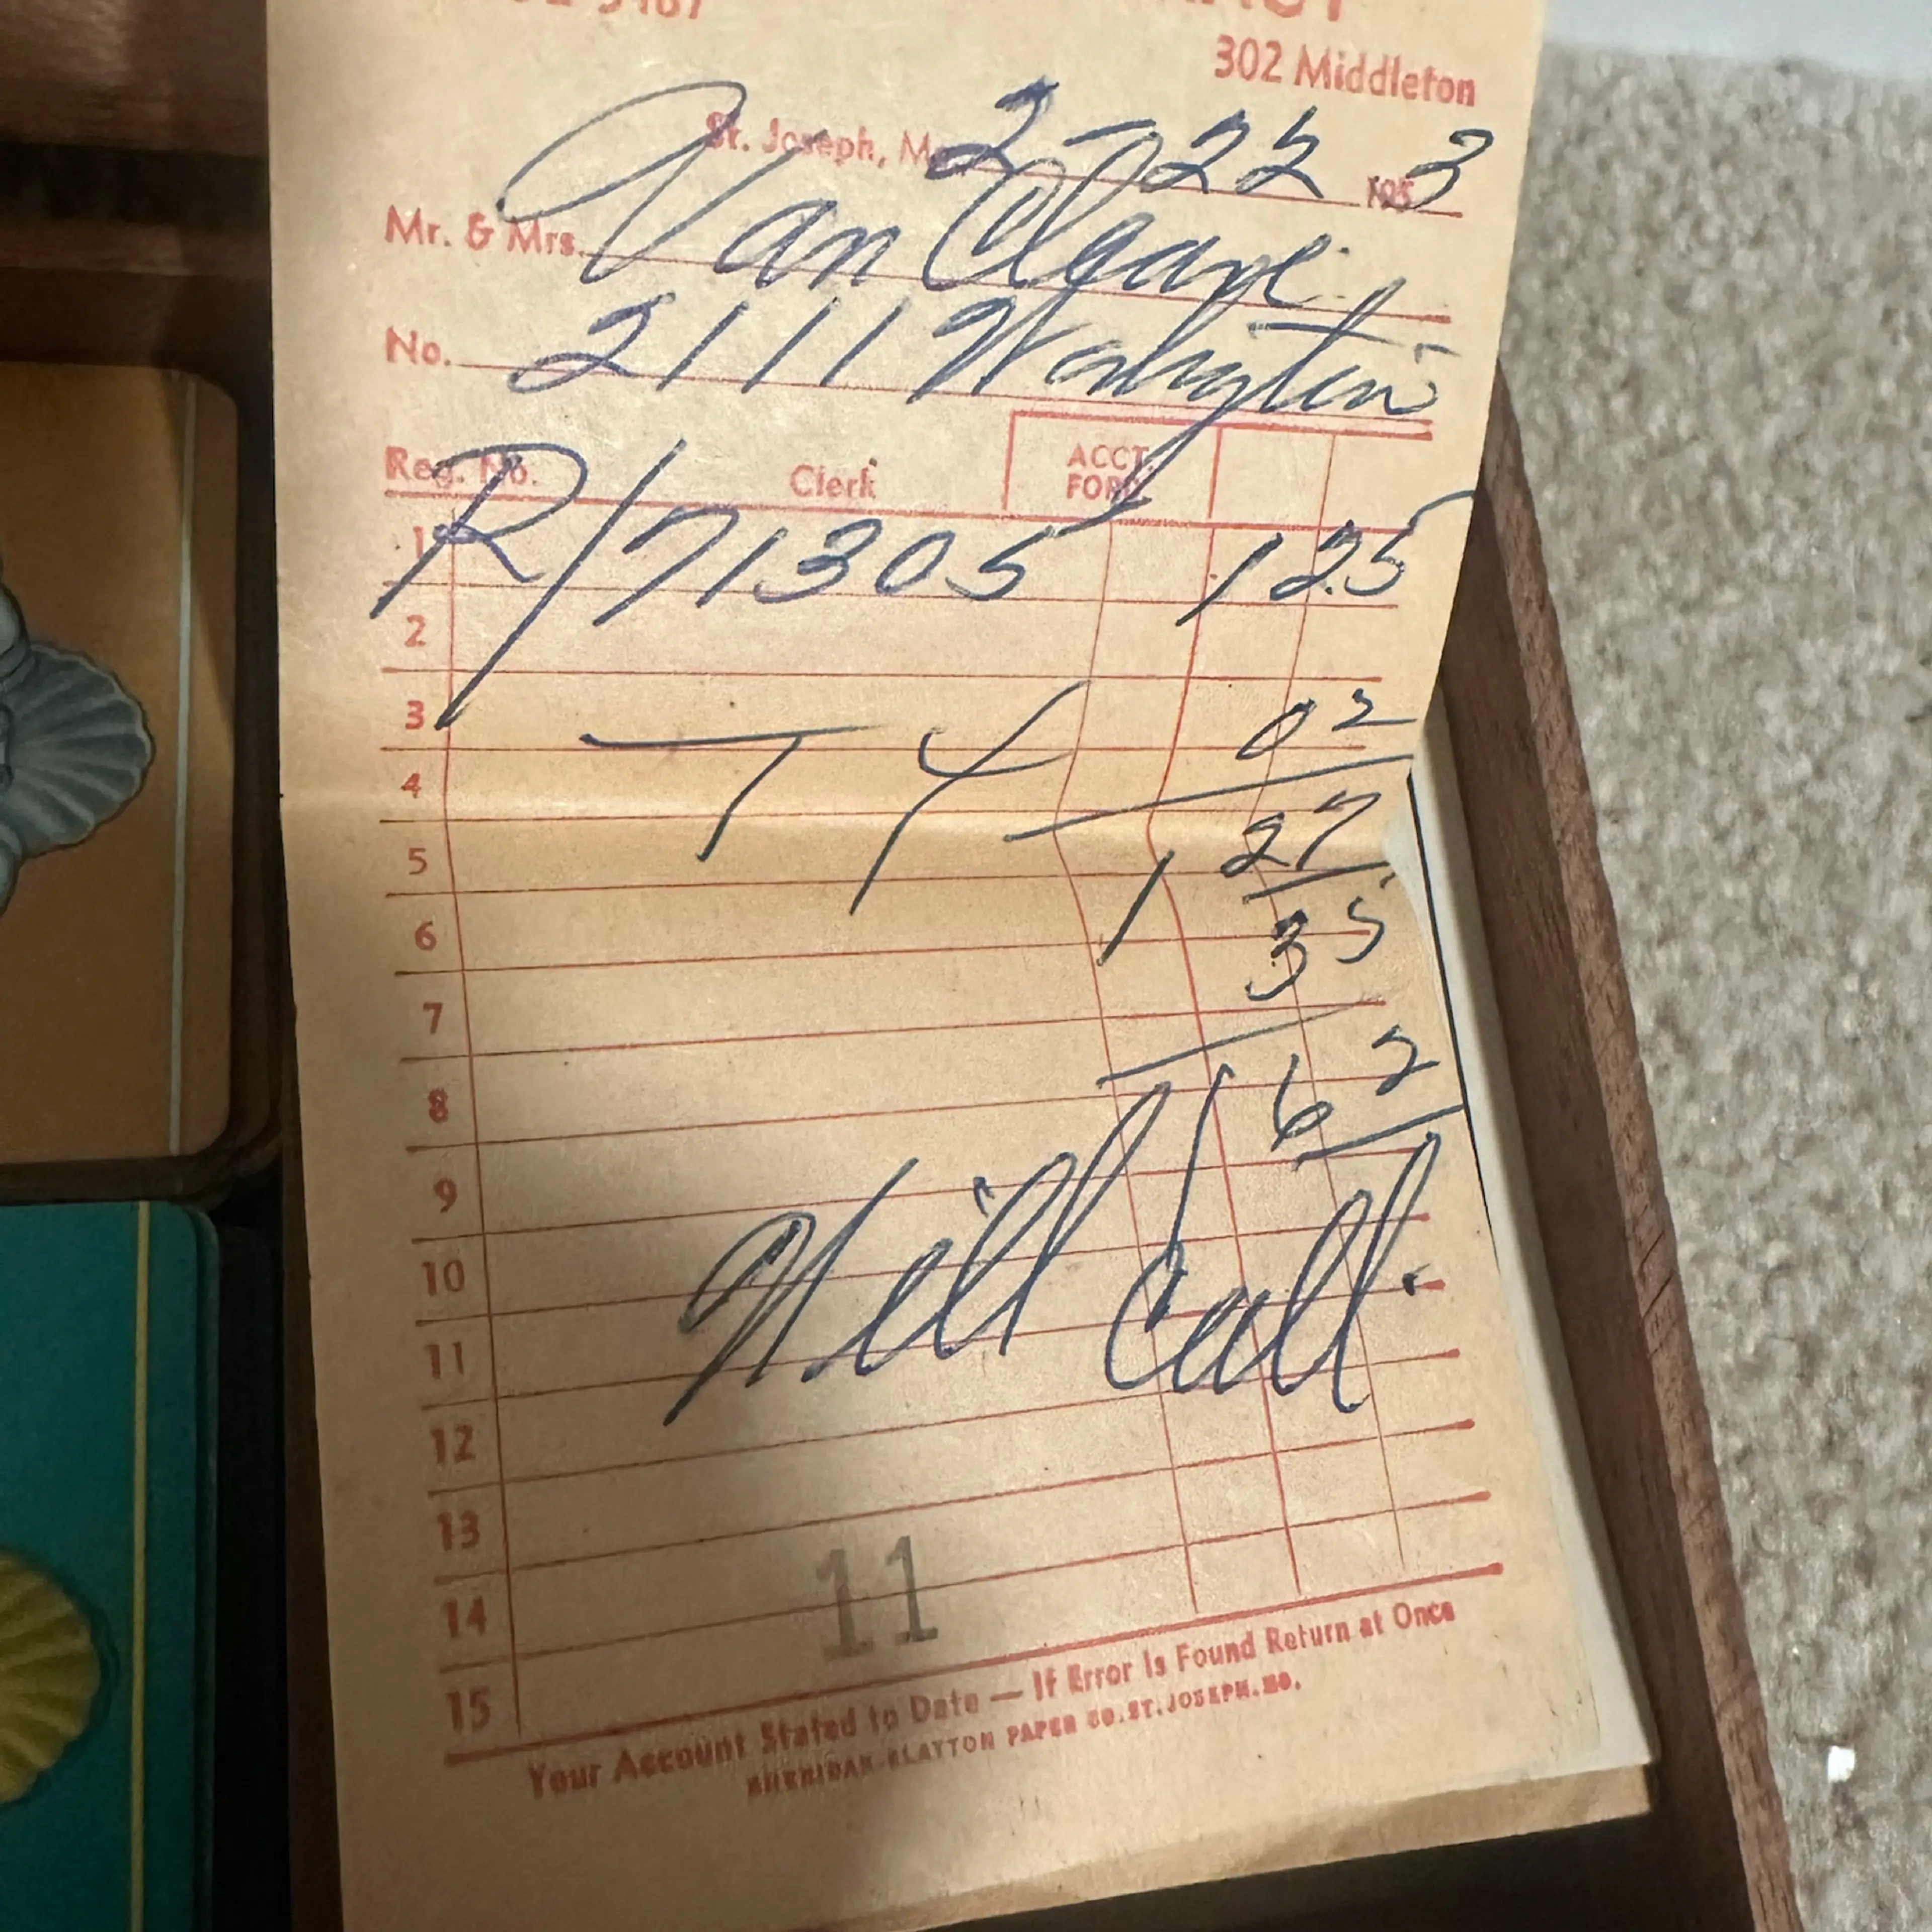 302 Middleton
St. Joseph, Mo. 2-22 195 3
Mr. & Mrs. Van Cleave
No. 2111 Washington
Reg. No. Clerk ACCT. FORD.
1 R/71305 1 25
2
3 T 4 02
4
5 1 27
6 35
7
8 1 62
9
10 Will Call
11
12
13
14 11
15
Your Account Stated to Date — If Error Is Found Return at Once
SHERIDAN-CLAYTON PAPER CO. ST. JOSEPH. MO.